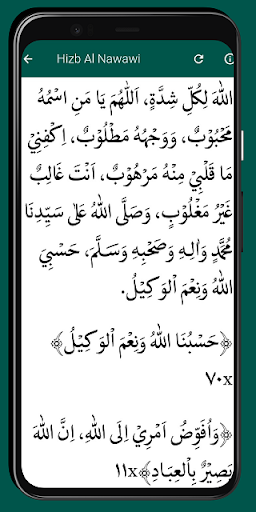 Hizb Al Nawawi
اللهَ لِكُلِّ شِدَّةٍ، اَللّٰهُمَّ يَا مَنِ اسْمُهُ
مَحْبُوْبٌ، وَوَجْهُهُ مَطْلُوْبٌ، اِكْفِنِيْ
مَا قَلْبِيْ مِنْهُ مَرْهُوْبٌ، اَنْتَ غَالِبٌ
غَيْرُ مَغْلُوْبٍ، وَصَلَّى اللهُ عَلَى سَيِّدِنَا
مُحَمَّدٍ وَاٰلِهِ وَصَحْبِهِ وَسَلَّمَ، حَسْبِيَ
اللهُ وَنِعْمَ اْلوَكِيْلُ.
﴿حَسْبُنَا اللهُ وَنِعْمَ اْلوَكِيْلُ﴾
٧٠x
﴿وَاُفَوِّضُ اَمْرِيْ اِلَى اللهِ، اِنَّ اللهَ
بَصِيْرٌ بِاْلعِبَادِ﴾١١x